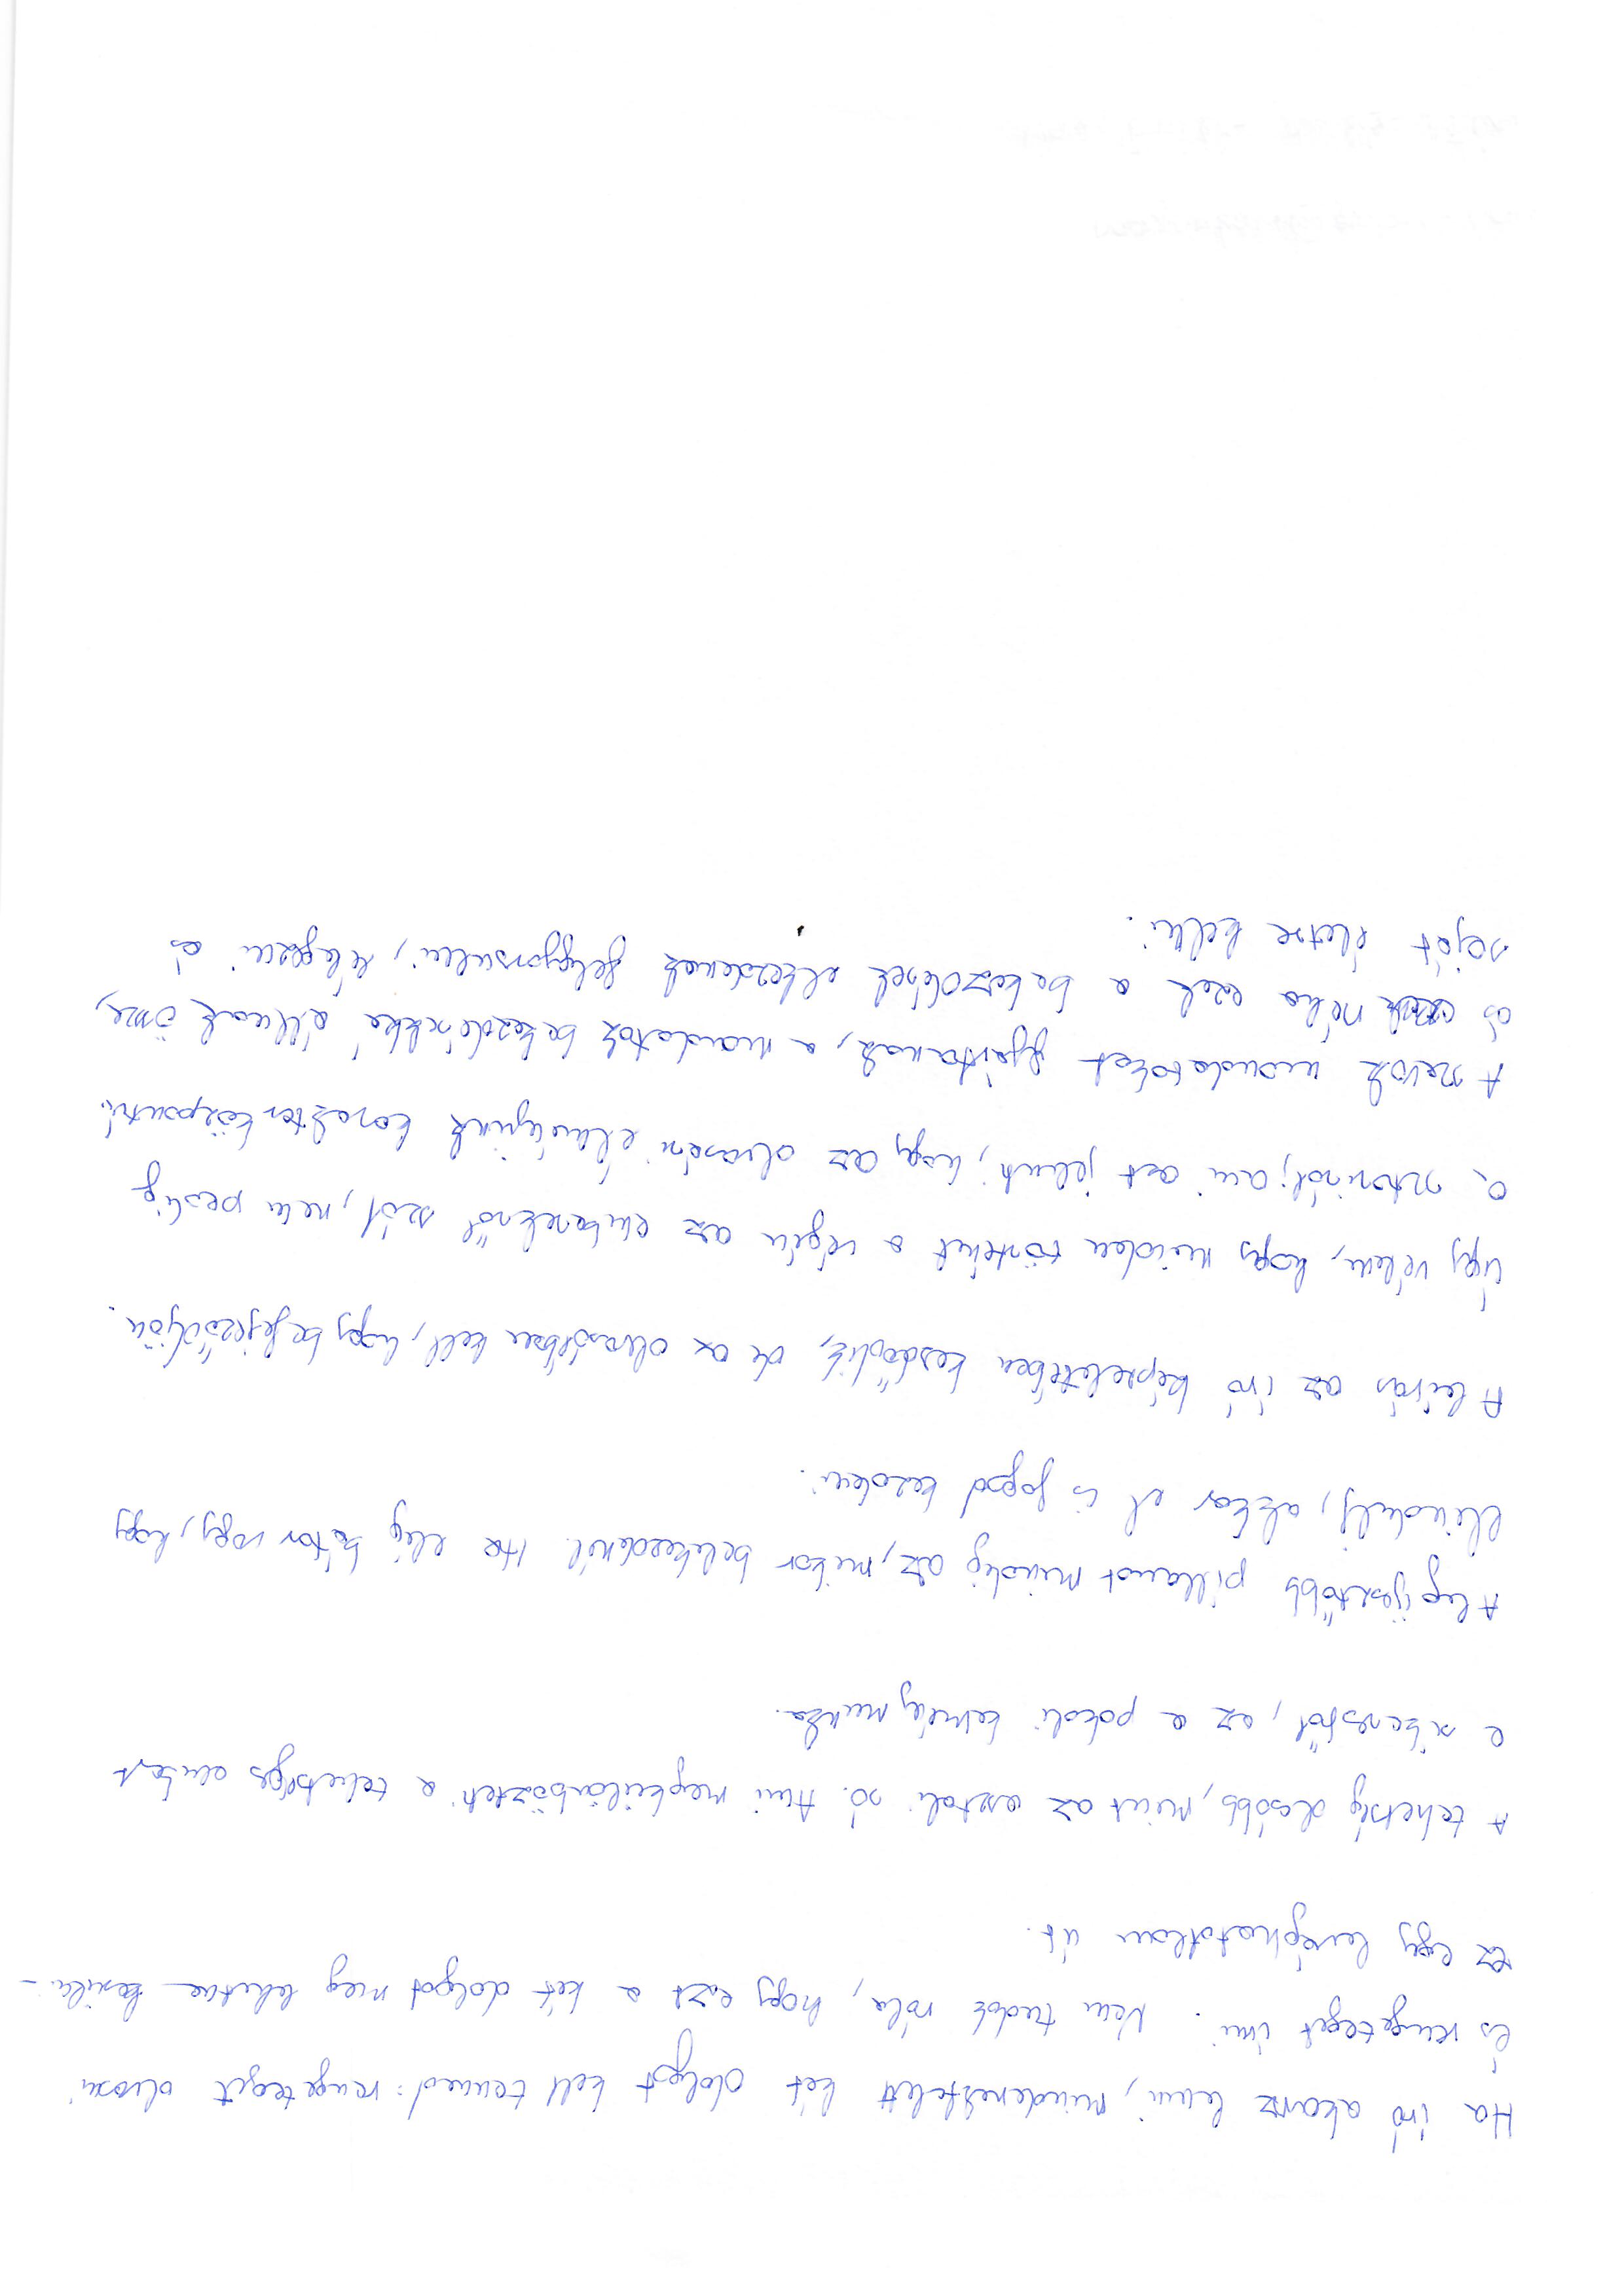 Ha író akarsz lenni, mindenekfelett két dolgot kell tenned: rengeteget olvasni
és rengeteget írni. Nem tudok róla, hogy ezt a két dolgot meg lehetne kerülni -
ez egy levághatatlan út.
A tehetség olcsóbb, mint az asztali só. Ami megkülönbözteti a tehetséges embert
a sikerestől, az a pokoli kemény munka.
A legijesztőbb pillanat mindig az, mikor belekezdenél. Ha elég bátor vagy, hogy
elindulj, akkor el is fogod kezdeni.
A leírás az író képzeletében kezdődik, de az olvasóéban kell, hogy befejeződjön.
Úgy vélem, hogy minden történet a végén az emberekről szól, nem pedig
a sztoriról; ami azt jelenti, hogy az olvasási élményünk karakterközpontú.
A szavak mondatokat gyártanak, a mondatok bekezdésekké állnak össze,
és néha ezek a bekezdések elkezdenek felgyorsulni, lélegezni és
saját életre kelni.